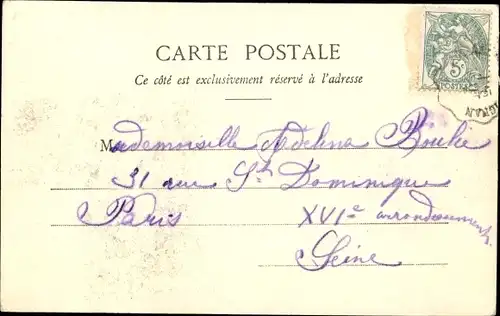 CARTE POSTALE
Ce côté est exclusivement réservé à l'adresse
5c
POSTES
Mademoiselle Adelina
31 rue St Dominique
Paris XVIe arrondissement
Seine